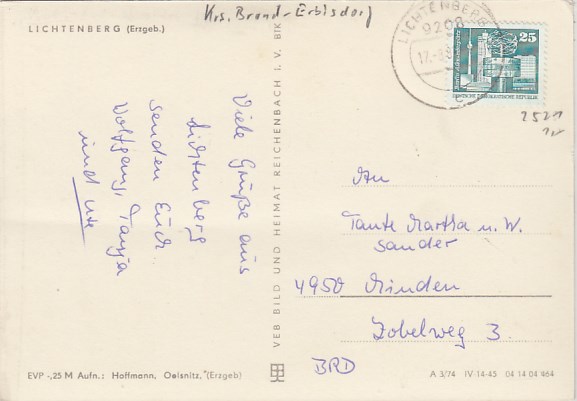 Krs. Brand-Erbisdorf
LICHTENBERG (Erzgeb.)
Viele Grüße aus
Lichtenberg
senden Euch
Wolfgang, Tanja
und Ute
VEB BILD UND HEIMAT REICHENBACH I. V. BTK
LICHTENBERG
9208
25
DEUTSCHE DEMOKRATISCHE REPUBLIK
2521
An
Tante Martha u. W.
Sander
4950 Minden
Zobelweg 3.
BRD
EVP -,25 M Aufn.: Hoffmann, Oelsnitz, (Erzgeb)
A 3/74 IV-14-45 04 14 04 464